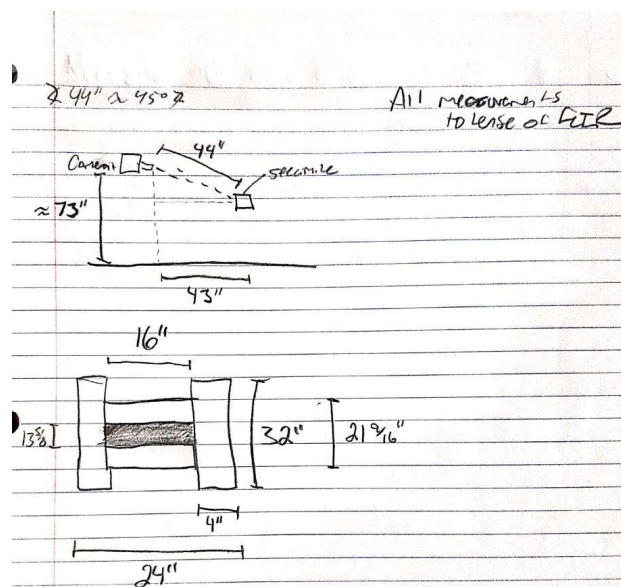 44" ≈ 45°
All measurements
to lense of FLIR
Camera
44"
specimine
≈73"
43"
16"
13 5/8
32"
21 9/16"
4"
24"